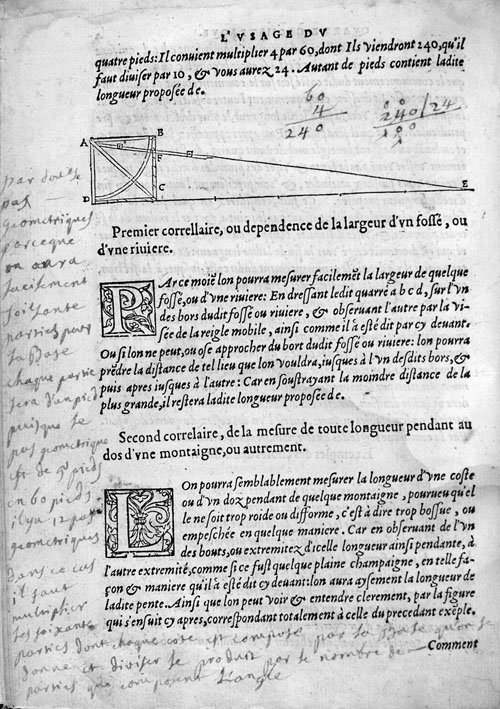 L'VSAGE DV
quatre pieds: Il conuient multiplier 4 par 60, dont Ils viendront 240, qu'il
faut diuiser par 10, & vous aurez 24. Autant de pieds contient ladite
longueur proposée de.
60
4
240
240/24
100
A B
F
D C E
Premier correllaire, ou dependence de la largeur d'vn fossé, ou
d'vne riuiere.
PAr ce moiẽ lon pourra mesurer facilemẽt la largeur de quelque
fossé, ou d'vne riuiere: En dressant ledit quarré a b c d, sur l'vn
des bors dudit fossé ou riuiere, & obseruant l'autre par la vi-
sée de la reigle mobile, ainsi comme il à esté dit par cy deuant.
Ou si lon ne peut, ou ose approcher du bort dudit fossé ou riuiere: lon pourra
prẽdre la distance de tel lieu que lon vouldra, iusques à l'vn desdits bors, &
puis apres iusques à l'autre: Car en soustrayant la moindre distance de la
plus grande, il restera ladite longueur proposée de.
Second correlaire, de la mesure de toute longueur pendant au
dos d'vne montaigne, ou autrement.
LOn pourra semblablement mesurer la longueur d'vne coste
ou d'vn doz pendant de quelque montaigne, pourueu qu'el
le ne soit trop roide ou difforme, c'est à dire trop bossue, ou
empeschée en quelque maniere. Car en obseruant de l'vn
des bouts, ou extremitez dicelle longueur ainsi pendante, à
l'autre extremité, comme si ce fust quelque plaine champaigne, en telle fa-
çon & maniere qu'il à esté dit cy deuant: lon aura aysement la longueur de
ladite pente. Ainsi que lon peut voir & entendre clerement, par la figure
qui s'ensuit cy apres, correspondant totalement à celle du precedant exẽple.
Comment
pas
geometriques
parceque
on aura
facilement
soixante
parties pour
Base
chaque partie
sera d'un pied
puisque le
pas geometrique
est de 5 pieds
en 60 pieds
il y a 12 pas
geometriques
dans ce cas
il faut
multiplier
les soixante
parties dont chaque coté est composé par la Base qu'on se
donne et diviser le produit par le nombre de
parties que composent l'angle